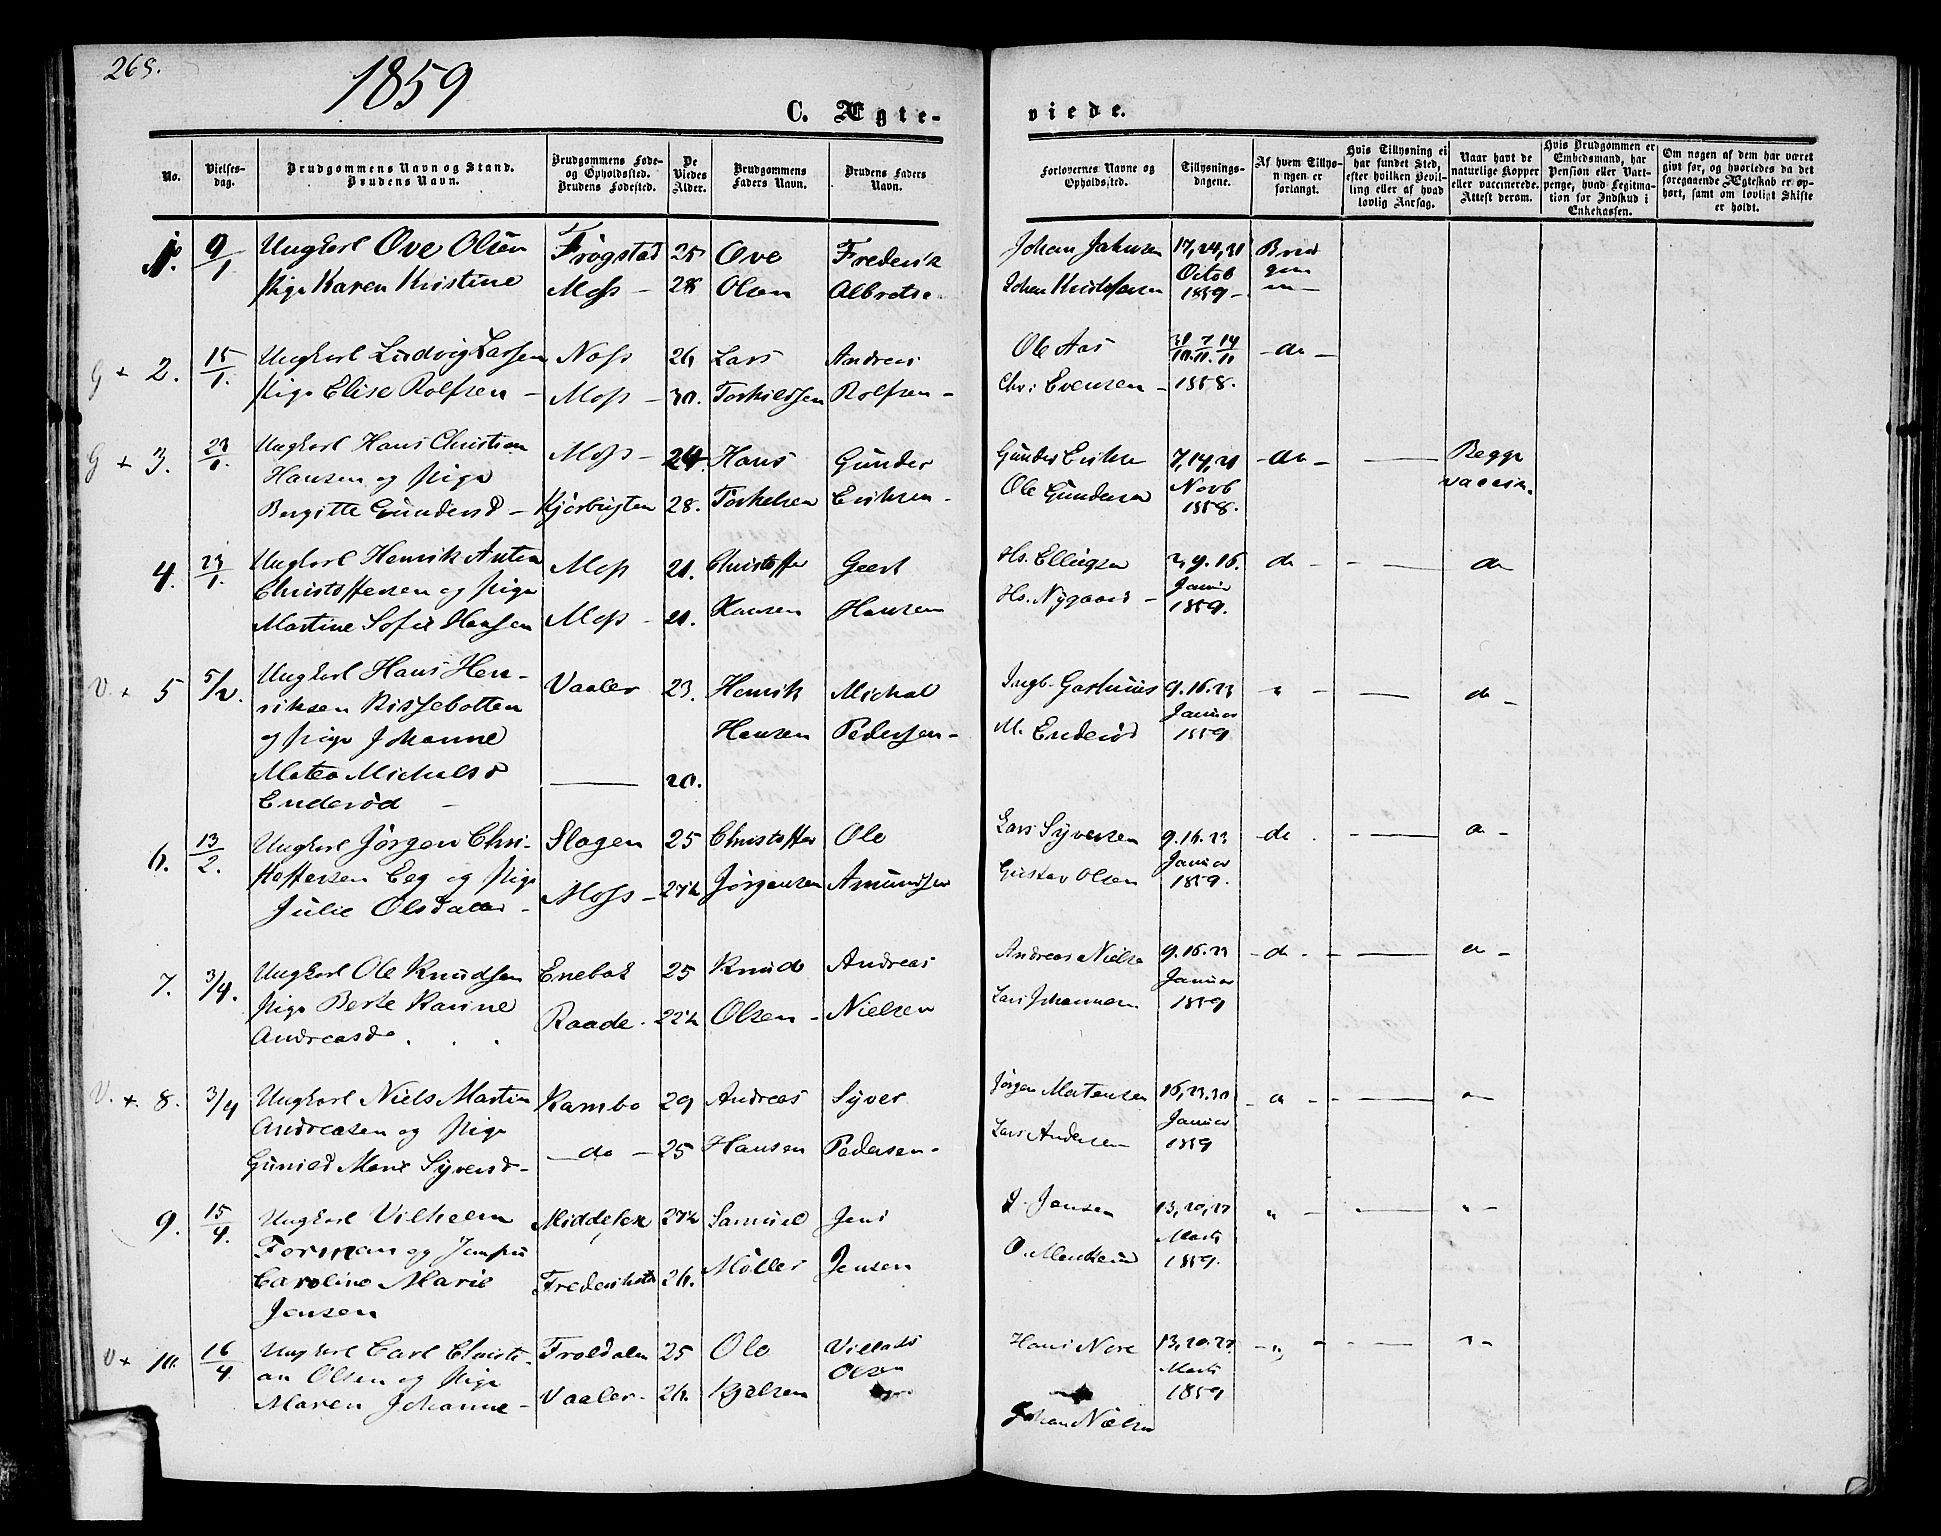 268.
1859
C. Ægte-
viede.
No.
Vielses-
dag.
Brudgommens Navn og Stand.
Brudens Navn.
Brudgommens Føde-
og Opholdsted.
Brudens Fødested.
De
Viedes
Alder.
Brudgommens
Faders Navn.
Brudens Faders
Navn.
Forlovernes Navne og
Opholdsted.
Tillysnings-
dagene.
Af hvem Tillys-
ningen er
forlangt.
Hvis Tillysning ei
har fundet Sted,
efter hvilken Bevil-
ling eller af hvad
lovlig Aarsag.
Naar havt de
naturlige Kopper
eller vaccinerede.
Attest derom.
Hvis Brudgommen er
Embedsmand, har
Pension eller Vart-
penge, hvad Legitma-
tion for Indskud i
Enkekassen.
Om nogen af dem har været
gift før, og hvorledes da det
foregaaende Ægteskab er op-
hørt, samt om lovligt Skifte
er holdt.
1. 9/1 Ungkarl Ove Olsen Frogstad 25 Ove Frederik Johan 17, 24, 31 Brud
Pige Karen Kristine Moss - 28 Olsen Octob gom
1859 -
G + 2. 15/1. Ungkarl Ludvig Larsen Moss 26 Lars Andreas Ole Aas 31/10 7/11 14/11 - do -
Pige Elise Rolfsen - Moss - 30. Torkildsen Rolfsen - Chr: Evensen - 1858.
G + 3. 23/1. Ungkarl Hans Christian Moss - 24. Hans Gunder Gunder Eriksen 7, 14, 21 - do - Begge
Hansen og Pige Novb vaccin.
Bergitte Gundersd - 28. Torkelsen Eriksen - Ole Gundersen 1858.
4. 23/1. Ungkarl Henrik Anton Moss 21. Christoffer Geert Hs. Ellingsen 2, 9. 16. do do
Christoffersen og Pige Januar
Martine Sofie Hansen Moss - 21. Hansen Hansen Hs. Nygaard - 1859.
V. + 5 5/2. Ungkarl Hans Hen- Vaaler 23. Henrik Michael 9. 16. 23 do -
riksen Rissebotten Januar
og Pige Johanne Hansen Pedersen - M. Enderød 1859
Matea Michelsd 20.
Enderød -
6. 13/2. Ungkarl Jørgen Chri- Slagen 25 Christoffer Ole Lars Syversen 9. 16. 23 do
stoffersen Eeg og Pige Januar
Julie Olsdatter - Moss - 27½ Jørgensen Amundsen Gustav Olsen 1859.
7. 3/4. Ungkarl Ole Knudsen Enebak 25 Knud Andreas Andreas Nielsen 9. 16. 23 - do -
Pige Berte Karine Januar
Andreasd. Raade - 22½ Olsen - Nielsen Lars Johannesen 1859
V. + 8. 3/4 Ungkarl Niels Martin Kambo 29 Andreas Syver Jørgen Mortensen 16, 23. 30
Andreasen og Pige Januar
Gunild Marie Syversd - do - 25 Hansen Pedersen - Lars Andersen 1859
9. 15/4. Ungkarl Vilhelm Middelsex 27½ Samuel Jens Jensen 13, 20, 27
Forman og Jomfru Marts
Caroline Marie 26. Møller Jensen 1859.
Jensen
V + 10. 16/4 Ungkarl Carl Christi- Froldalen 25 Ole Villads Hans Nore 13, 20. 27
an Olsen og Pige Olsen Marts
Maren Johanne - Vaaler - 26. Kjelsen 1859
Johan Nielsen